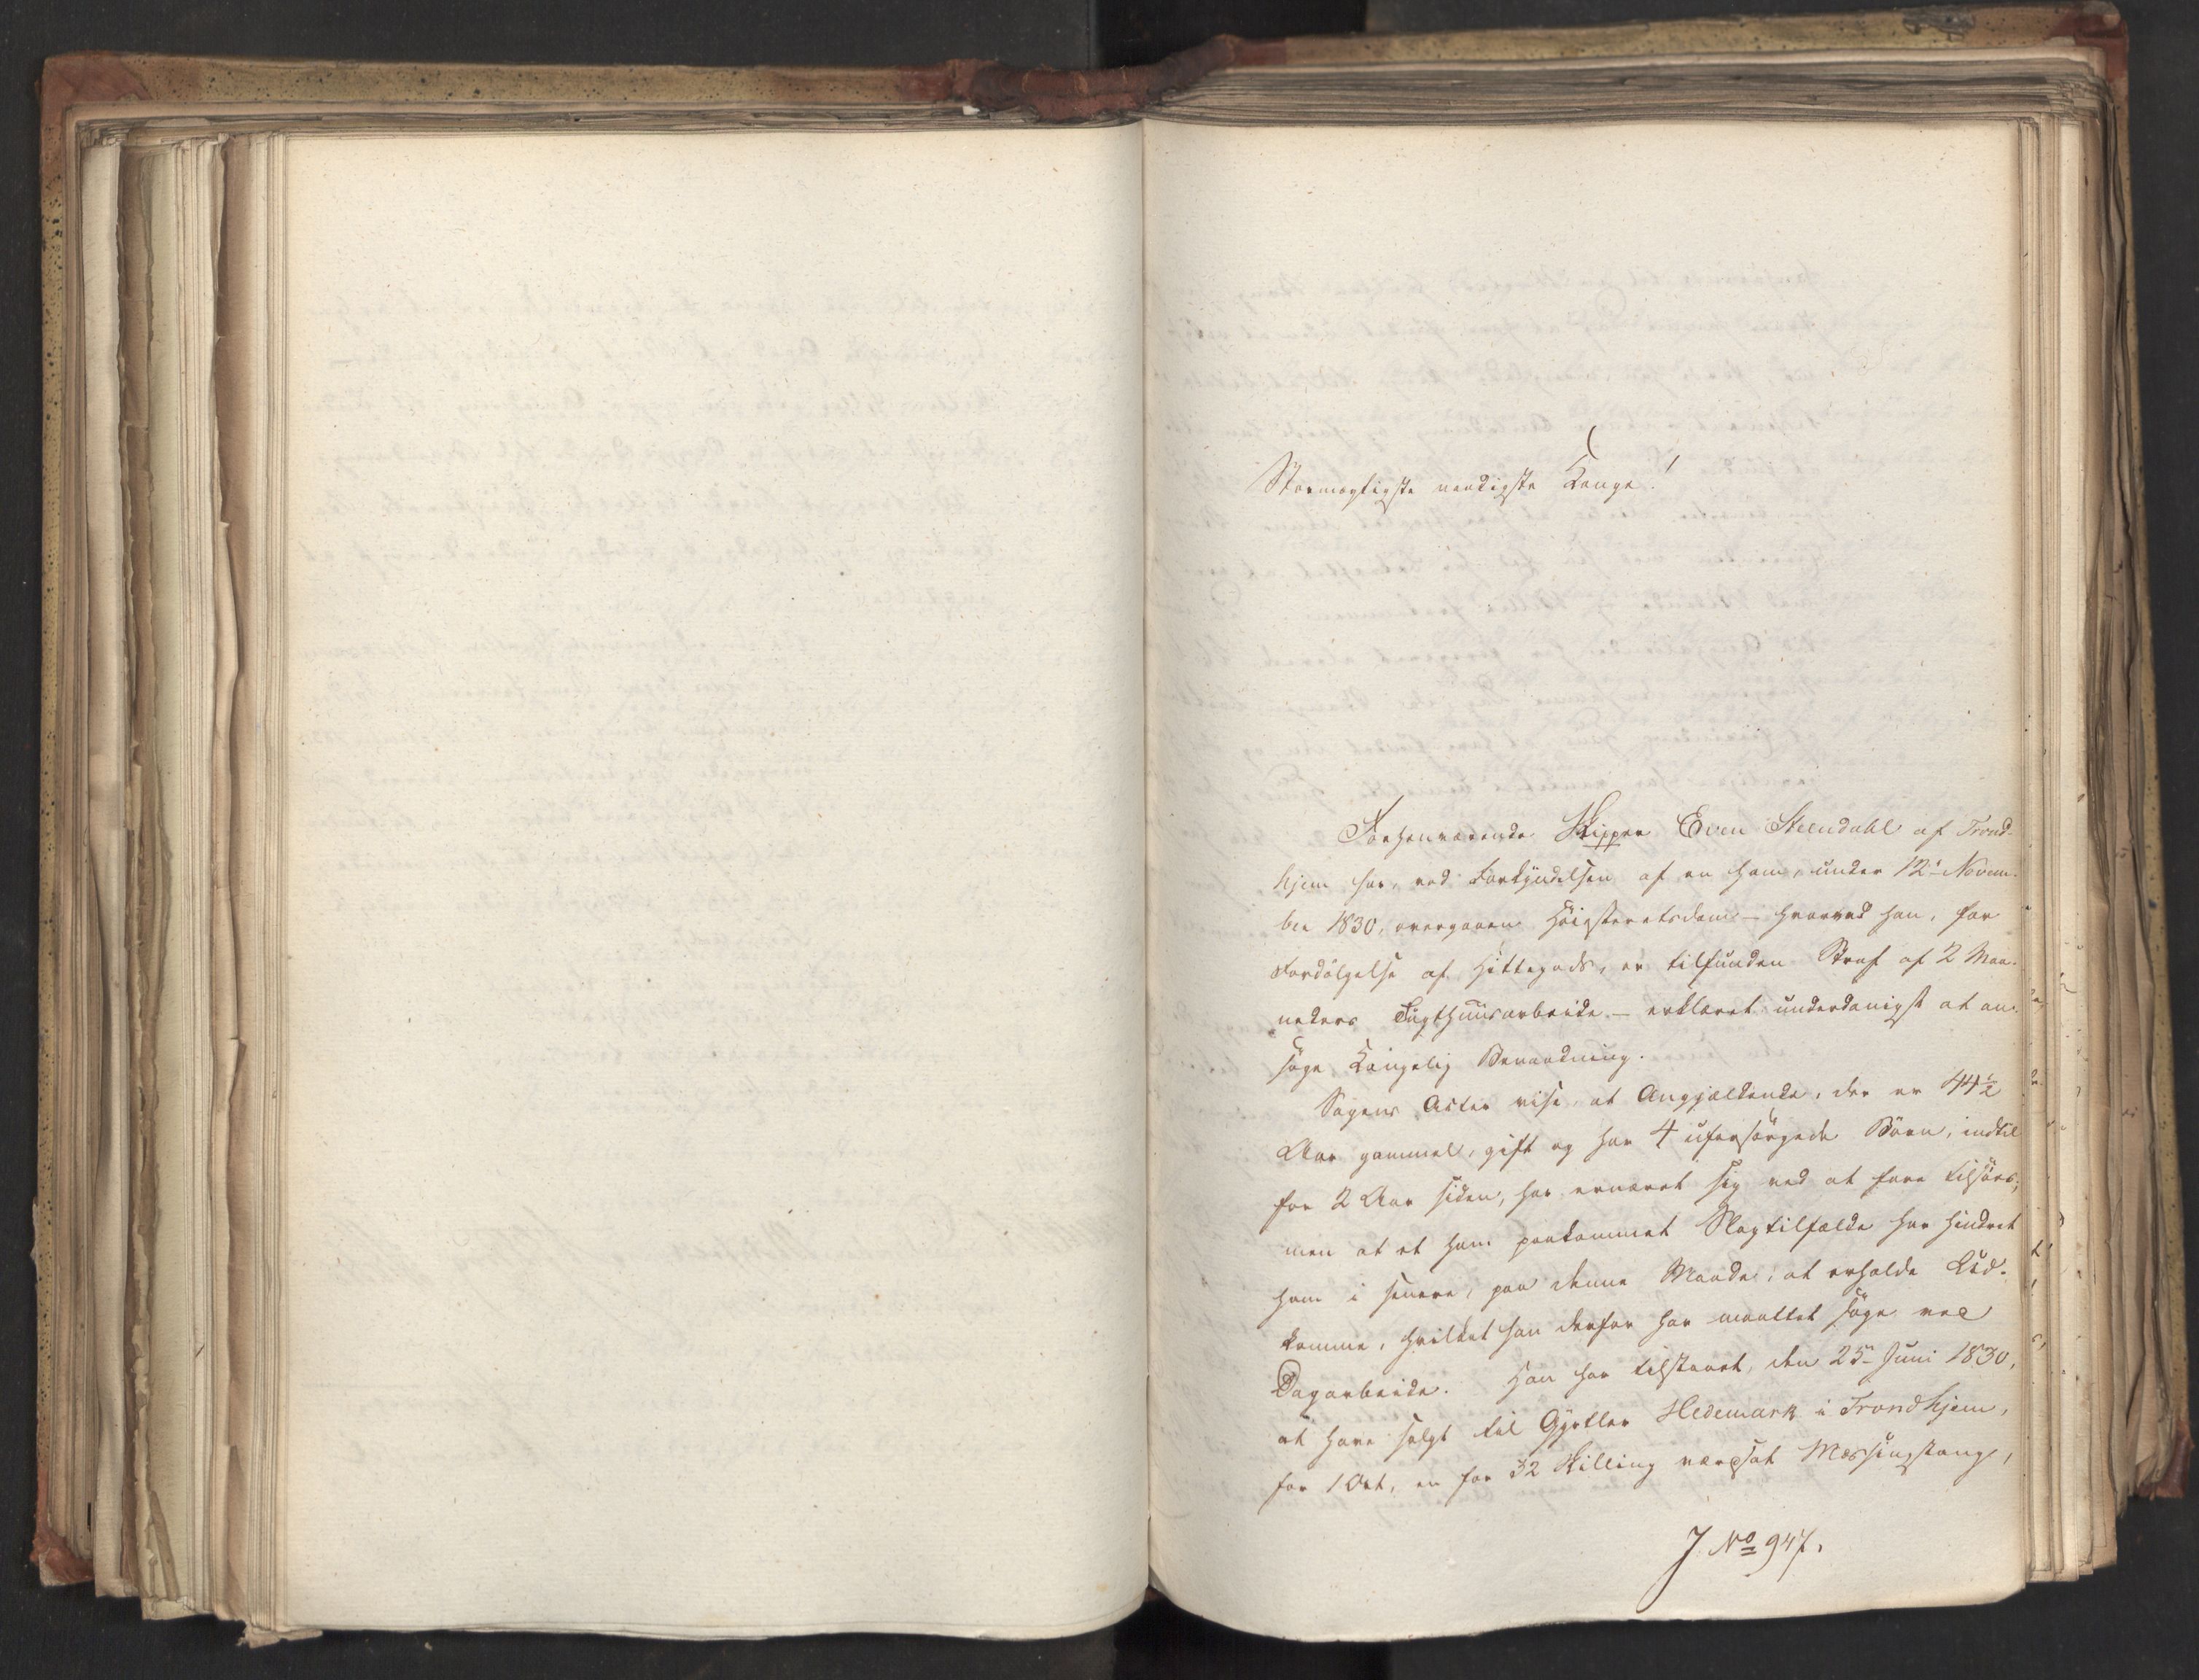 Stormægtigste naadigste Konge!
Forhenværende Skipper Even Steendahl af Trond-
hjem har, ved Forkyndelsen af en ham, under 12te Novem-
ber 1830, overgaaen Höiesteretsdom – hvorved han, for
Fordölgelse af Hittegods, er tilfunden Straf af 2 Maa-
neders Tugthuusarbeide – erklæret underdanigst at an-
söge Kongelig Benaadning.
Sagens Acter vise, at Angjældende, der er 44½
Aar gammel, gift og har 4 uforsörgede Börn, indtil
for 2 Aar siden, har ernæret sig ved at fare tilsöes;
men at et ham paakommet Slagtilfælde har hindret
ham i senere, paa denne Maade, at erholde Ud-
komme, hvilket han derfor har maattet söge ved
Dagarbeide. Han har tilstaaet, den 25de Juni 1830,
at have solgt til Gjørtler Hedemark i Trondhjem,
for 1 Ort, en for 32 Skilling værdsat Messingstang,
J. No 947.